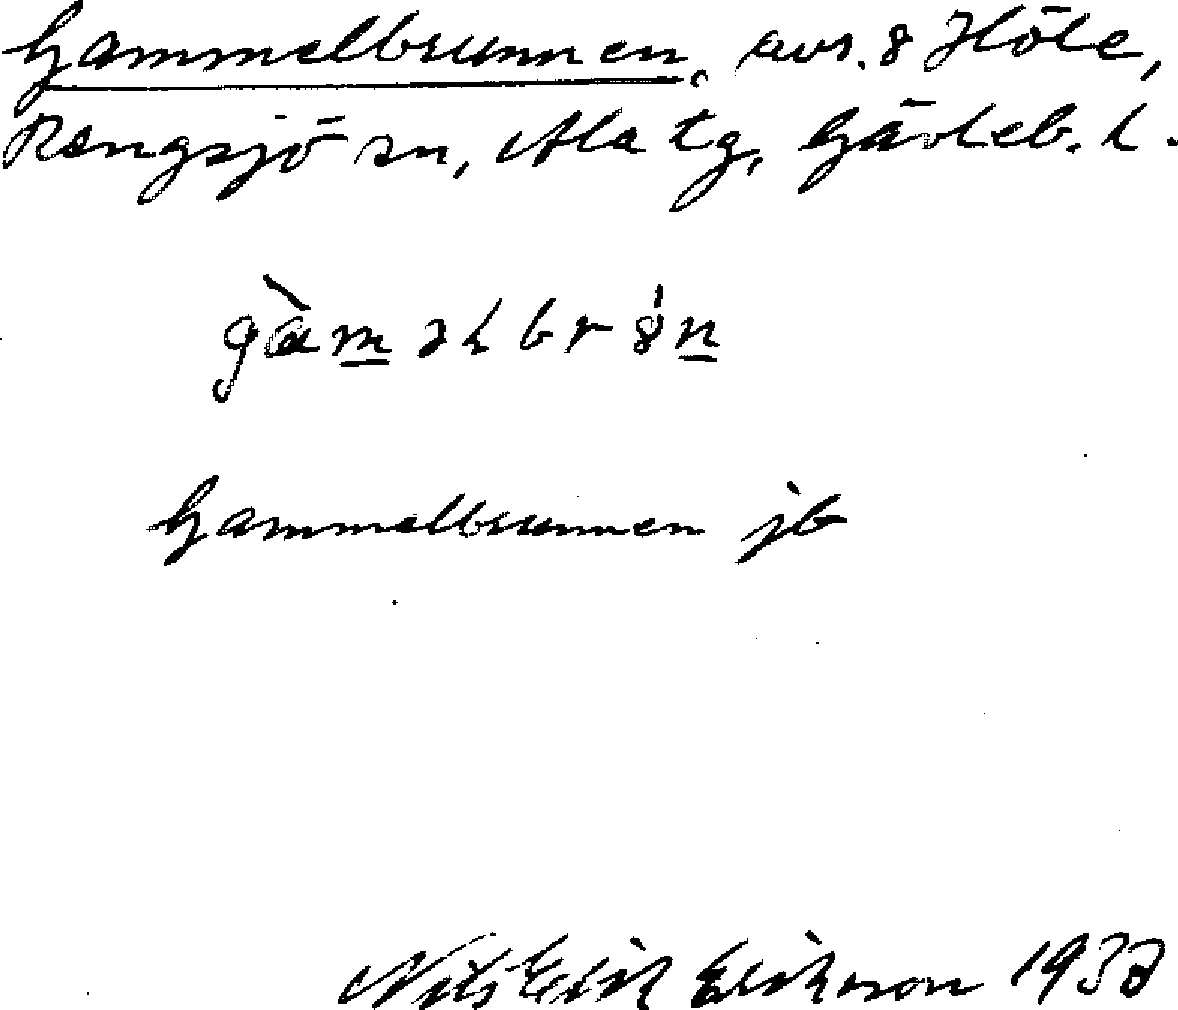 Gammelbrunnen, avs. 8 Höle,
Rengsjö sn, Ala tg, Gävleb. l.
gàməlbr8n
Gammelbrunnen jb
Nils Erik Erikson 1937